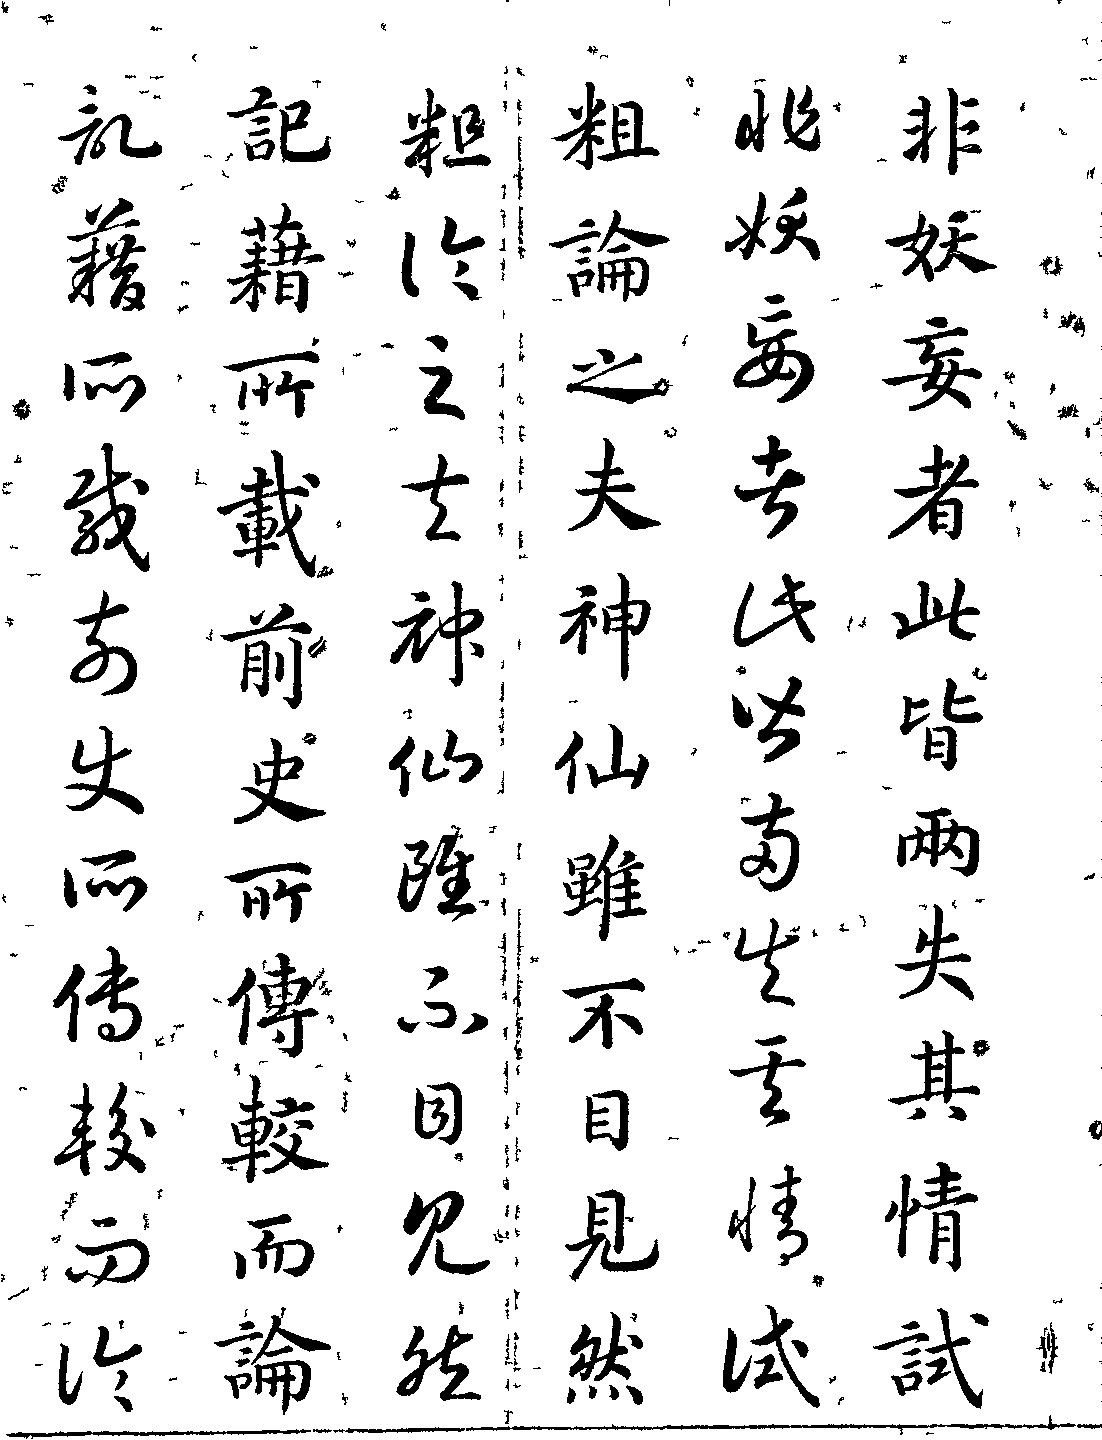 非妖妄者此皆兩失其情試
非妖妄者此皆兩失其情試
粗論之夫神仙雖不目見然
粗論之夫神仙雖不目見然
記藉所載前史所傳較而論
記藉所載前史所傳較而論